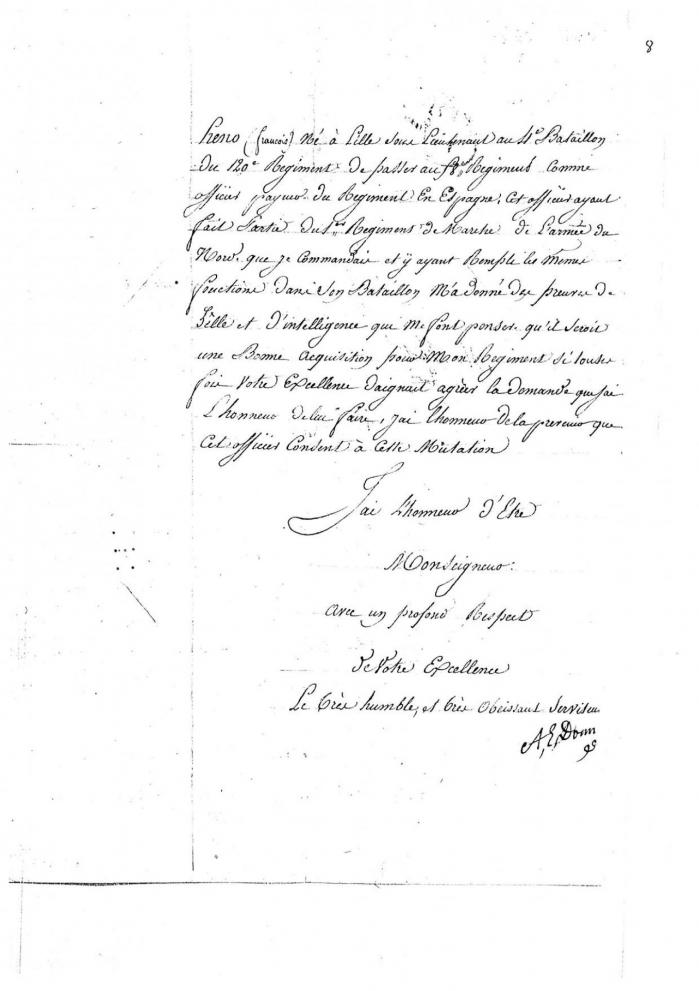 8
heno (françois) Né à Lille Sous Lieutenant au 4e Bataillon
du 120e Regiment de passer au Regiment comme
officier payeur du Regiment En Espagne; Cet officier ayant
fait Partie du 1er Regiment de Marche de L'armée du
Nord que je Commandais et y ayant Remplie les Memes
fonctions dans Son Bataillon M'a donné des preuves de
Zélle et D'intelligence que me font penser qu'il seroit
une Bonne acquisition pour Mon Regiment si toutes
fois Votre Excellence Daignait agréer la demande que jai
L'honneur de lui faire, jai L'honneur de la prevenir que
Cet officier Consent à Cette Mutation
J'ai L'honneur D'Etre
Monseigneur:
avec un profond Respect
De Votre Excellence
Le très humble, et très Obeissant Serviteu
A, Et Donn